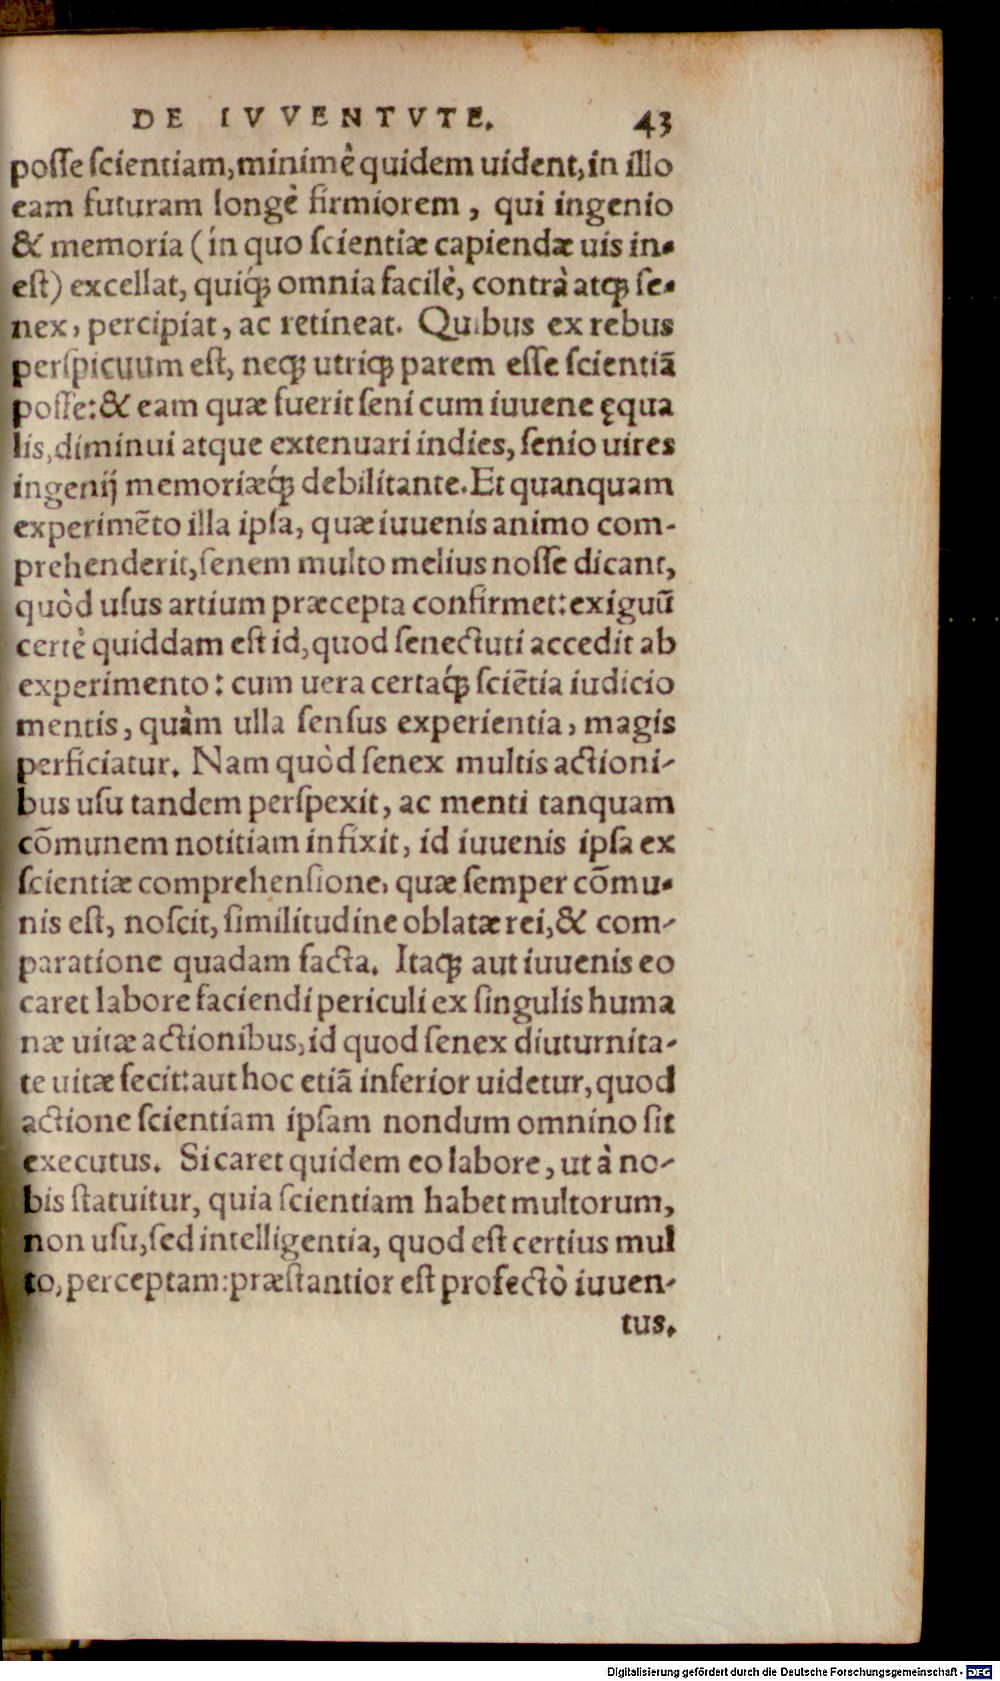 DE IVVENTVTE. 43
posse scientiam, minimè quidem uident, in illo
eam futuram longè firmiorem, qui ingenio
& memoria (in quo scientiæ capiendæ uis in-
est) excellat, quiq́; omnia facilè, contrà atq; se-
nex, percipiat, ac retineat. Quibus ex rebus
perspicuum est, neq; utriq; parem esse scientiā
posse: & eam quæ fuerit seni cum iuuene ęqua
lis, diminui atque extenuari indies, senio uires
ingenij memoriæq́; debilitante. Et quanquam
experimēto illa ipsa, quæ iuuenis animo com-
prehenderit, senem multo melius nosse dicant,
quòd usus artium præcepta confirmet: exiguū
certè quiddam est id, quod senectuti accedit ab
experimento: cum uera certaq́; sciētia iudicio
mentis, quàm ulla sensus experientia, magis
perficiatur. Nam quòd senex multis actioni-
bus usu tandem perspexit, ac menti tanquam
cōmunem notitiam infixit, id iuuenis ipsa ex
scientiæ comprehensione, quæ semper cōmu-
nis est, noscit, similitudine oblatæ rei, & com-
paratione quadam facta. Itaq; aut iuuenis eo
caret labore faciendi periculi ex singulis huma
næ uitæ actionibus, id quod senex diuturnita-
te uitæ fecit: aut hoc etiā inferior uidetur, quod
actione scientiam ipsam nondum omnino sit
executus. Si caret quidem eo labore, ut à no-
bis statuitur, quia scientiam habet multorum,
non usu, sed intelligentia, quod est certius mul
to, perceptam: præstantior est profectò iuuen-
tus.
Digitalisierung gefördert durch die Deutsche Forschungsgemeinschaft - DFG